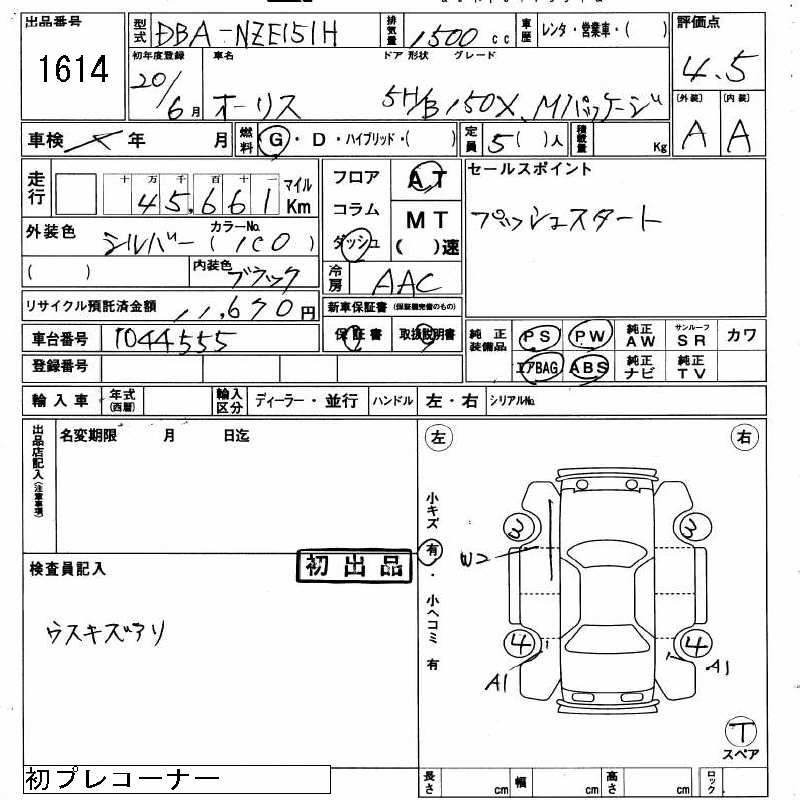 出品番号
1614
型式 DBA-NZE151H
排気量 1500 cc
車歴 レンタ・営業車・( )
評価点
4.5
初年度登録
20/6月
車名
オーリス
ドア 形状 グレード
5H/B 150X Mパッケージ
(外装) (内装)
A A
車検 年 月
燃料 G・D・ハイブリッド・( )
定員 5( )人
積載量 Kg
走行
十 万 千 百 十 一
45,661
マイル
Km
フロア
コラム
ダッシュ
AT
MT
( )速
セールスポイント
プッシュスタート
外装色 シルバー
カラーNo.
(1C0)
( )
内装色 ブラック
冷房 AAC
リサイクル預託済金額 11,670円
新車保証書 (保証継続完備のもの)
車台番号 1044555
保証書 取扱説明書
登録番号
純正装備品
PS PW 純正AW サンルーフSR カワ
エアBAG ABS 純正ナビ 純正TV
輸入車 年式(西暦) 輸入区分 ディーラー・並行 ハンドル 左・右 シリアルNo.
出品店記入(注意事項)
名変期限 月 日迄
検査員記入
初出品
ウスキズアリ
左 右
小キズ 有・小ヘコミ 有
3 3
W2
4 4
A1 A1
T
スペア
初プレコーナー
長さ cm 幅 cm 高さ cm ロック